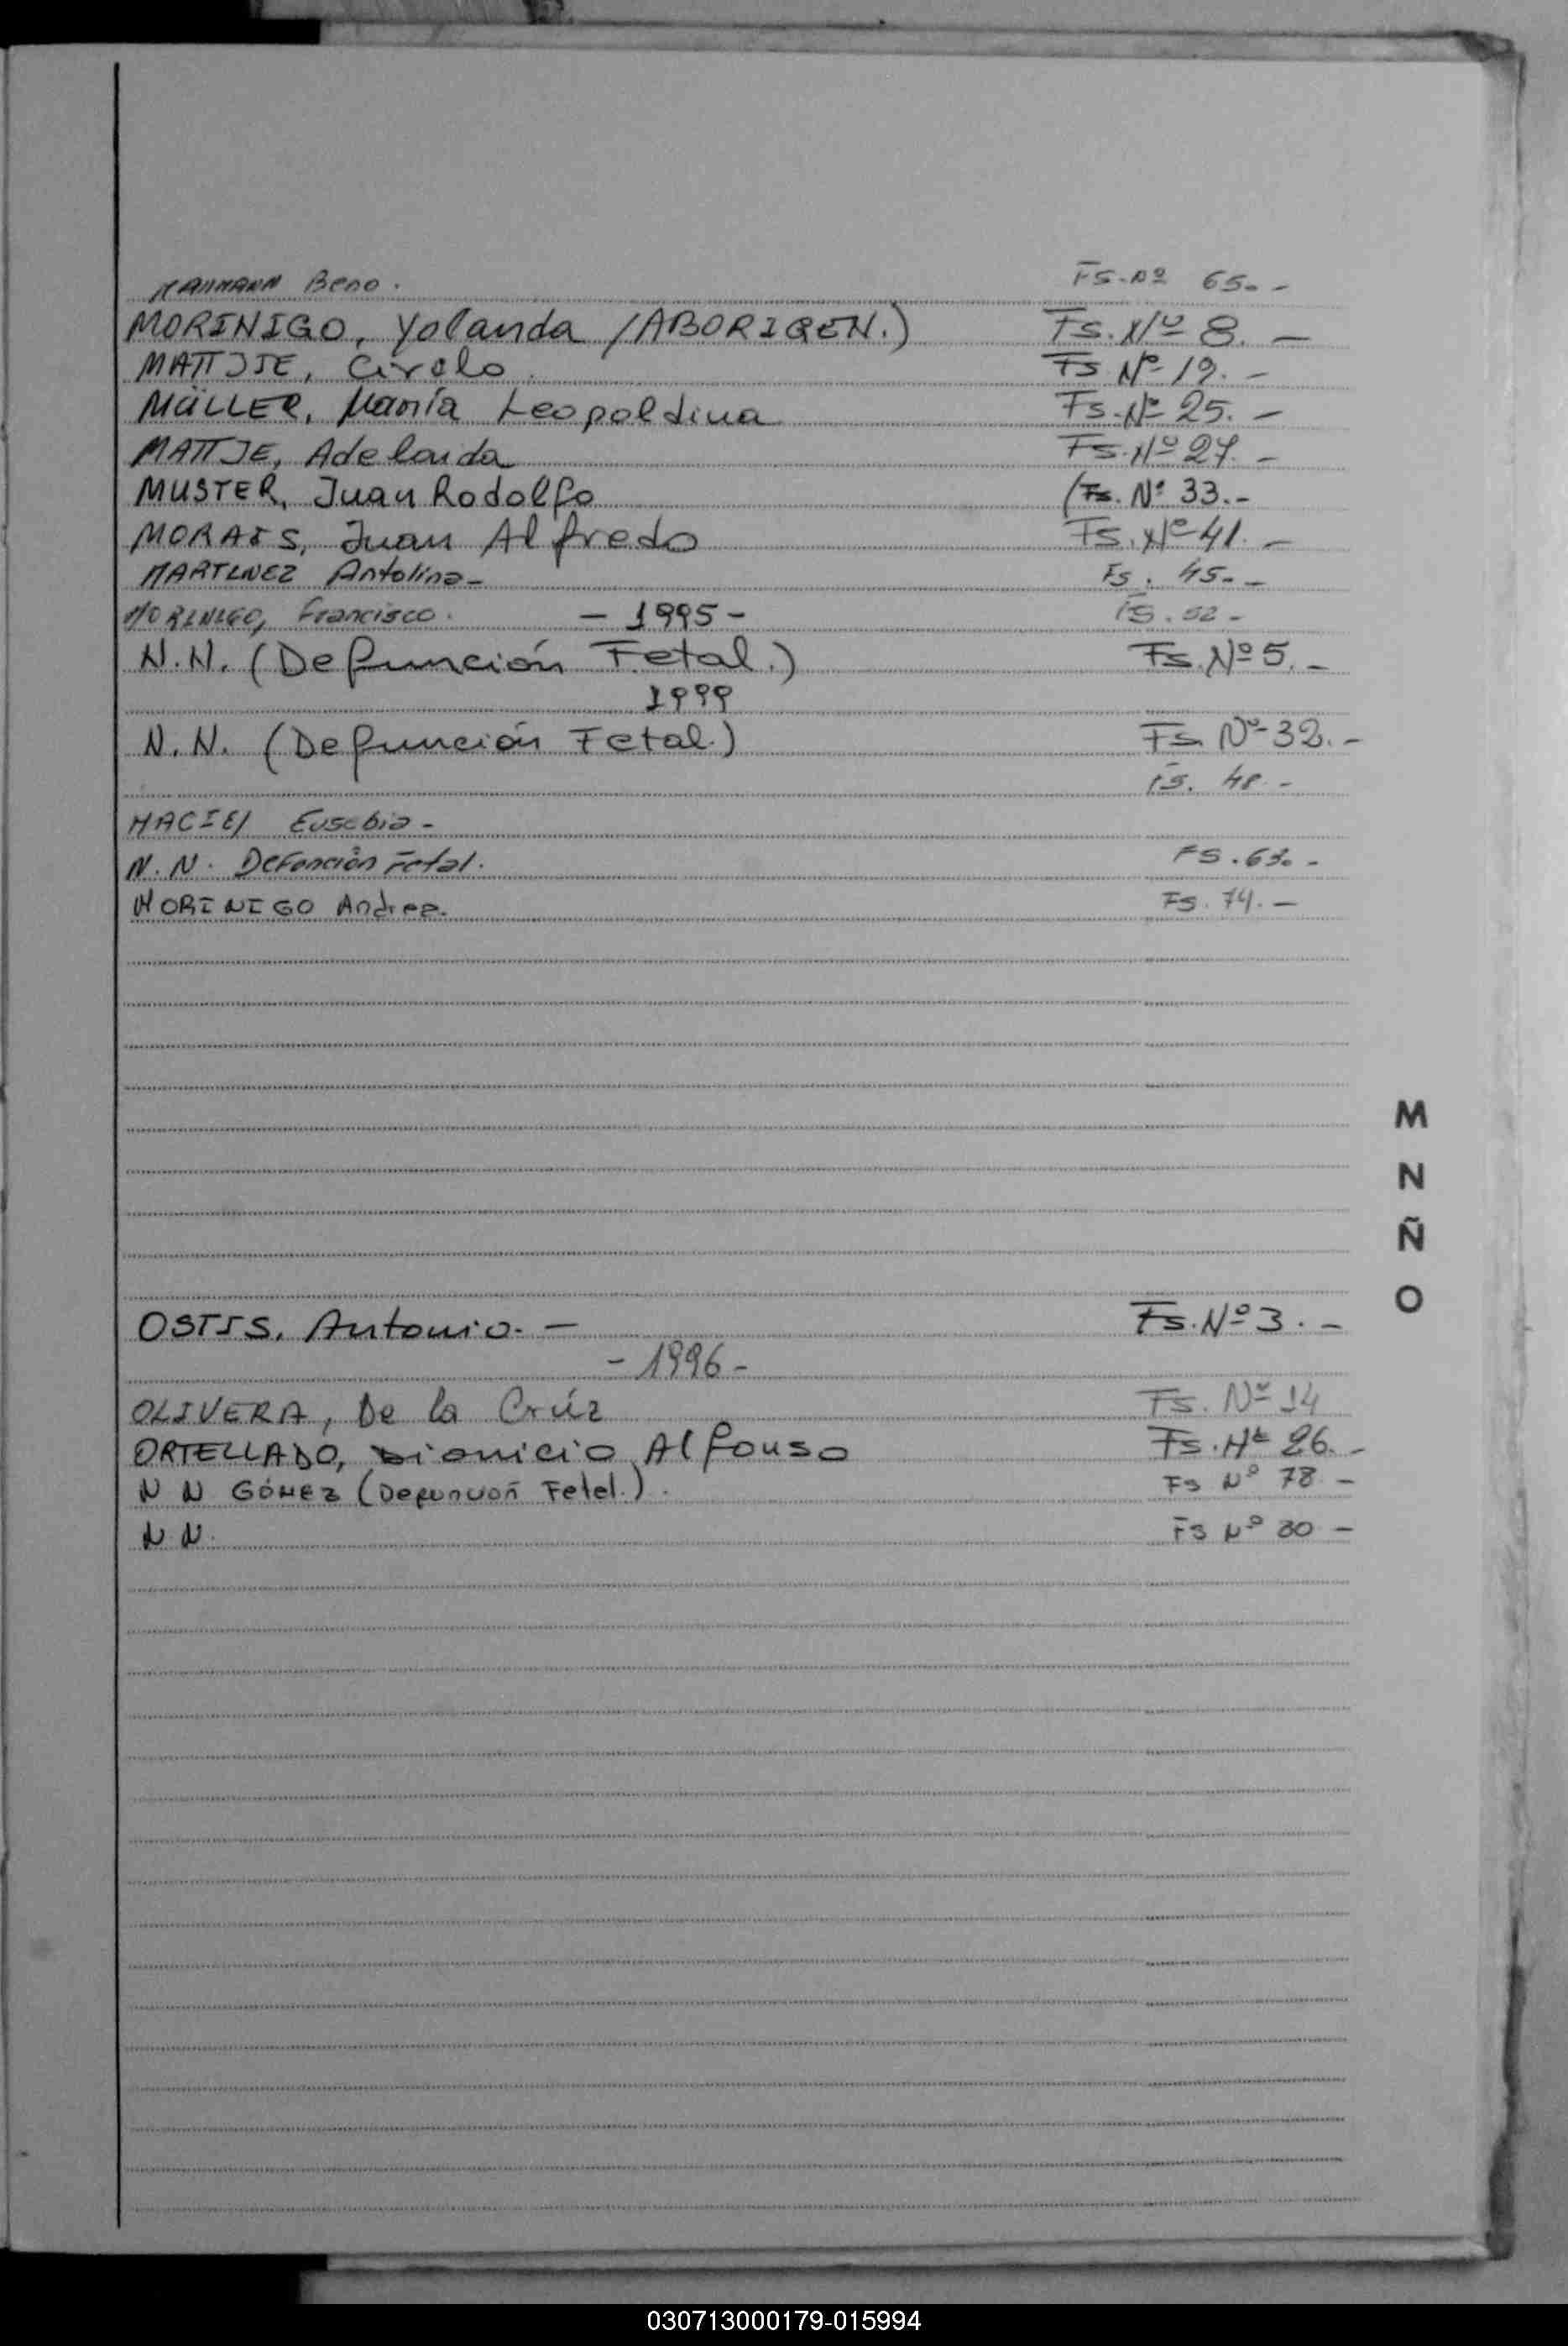 Beno. FS-Nº 65.-
MORINIGO, Yolanda (ABORIGEN.) Fs. Nº 8. -
MATTJE, Cirelo. Fs Nº 19. -
MÜLLER, María Leopoldina Fs. Nº 25. -
MATTJE, Adelaida Fs. Nº 27. -
MUSTER, Juan Rodolfo (Fs. Nº 33.-
MORAIS, Juan Alfredo Fs. Nº 41. -
MARTINEZ Antolina- Fs. 45.-
MORINIGO, Francisco. - 1995 - FS. 52 -
N.N. (Defunción Fetal.) Fs. Nº 5. -
1999
N.N. (Defunción Fetal.) Fs. Nº 32. -
FS. 48. -
MACIEl Eusebio -
N.N. Defunción Fetal. FS.
MORINIGO Andrea. Fs. 74. -
M
N
Ñ
O
OSTIS, Antonio. - Fs. Nº 3. -
- 1996 -
OLIVERA, De la Crúz Fs. Nº 14
ORTELLADO, Dionicio Alfonso Fs. Nº 26. -
N N GÓMEZ (Defunción Fetel.). Fs Nº 78 -
N N. Fs Nº 80 -
030713000179-015994